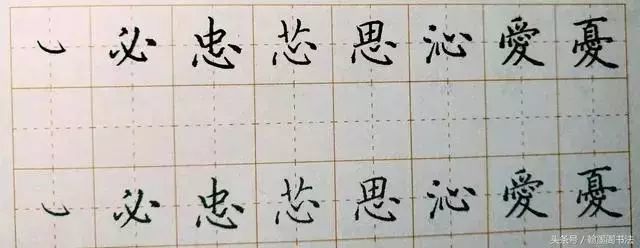 ㇃必忠芯思沁愛憂
㇃必忠芯思沁愛憂
头条号/翰墨阁书法